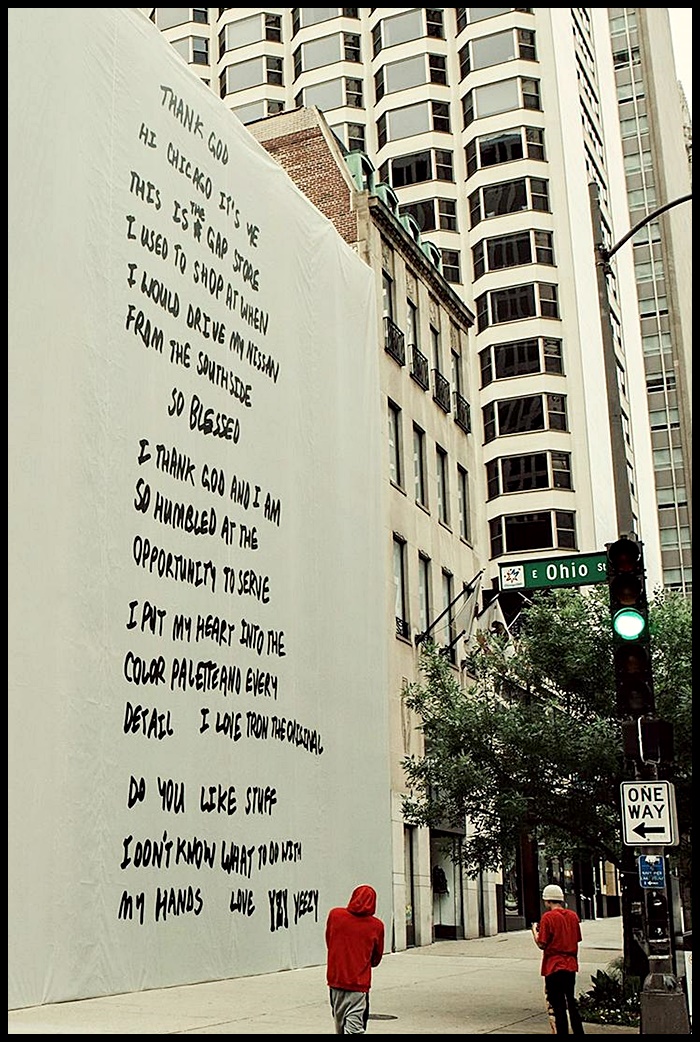 THANK GOD
HI CHICAGO IT'S YE
THIS IS THE GAP STORE
I USED TO SHOP AT WHEN
I WOULD DRIVE MY NISSAN
FROM THE SOUTHSIDE
SO BLESSED
I THANK GOD AND I AM
SO HUMBLED AT THE
OPPORTUNITY TO SERVE
I PUT MY HEART INTO THE
COLOR PALETTE AND EVERY
DETAIL I LOVE TRON THE ORIGINAL
DO YOU LIKE STUFF
I DON'T KNOW WHAT TO DO WITH
MY HANDS LOVE YEEZY
E Ohio St
ONE
WAY